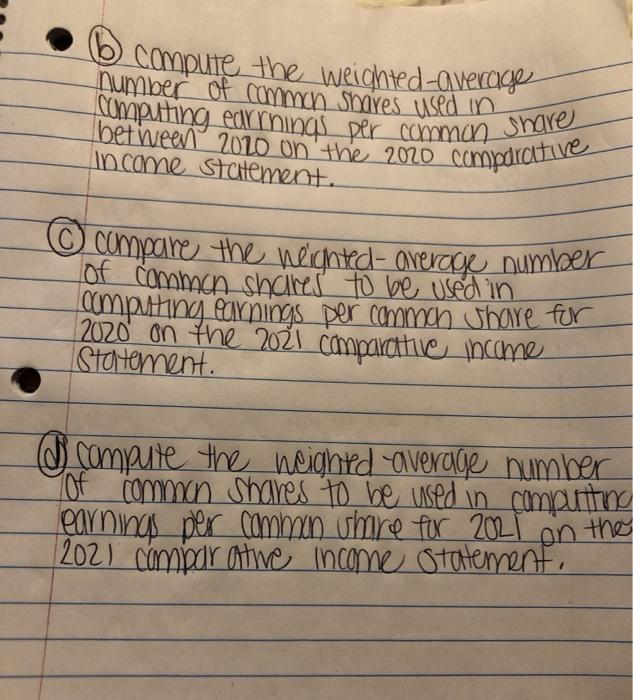 ⓑ compute the weighted-average
number of common shares used in
computing earrnings per common share
between 2020 on the 2020 comparative
income statement.
ⓒ compare the weighted-average number
of common shares to be used in
computing earnings per common share for
2020 on the 2021 comparative income
statement.
ⓓ compute the weighted-average number
of common shares to be used in computing
earnings per common share for 2021 on the
2021 comparative income statement.